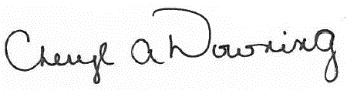 Cheryl A Downing